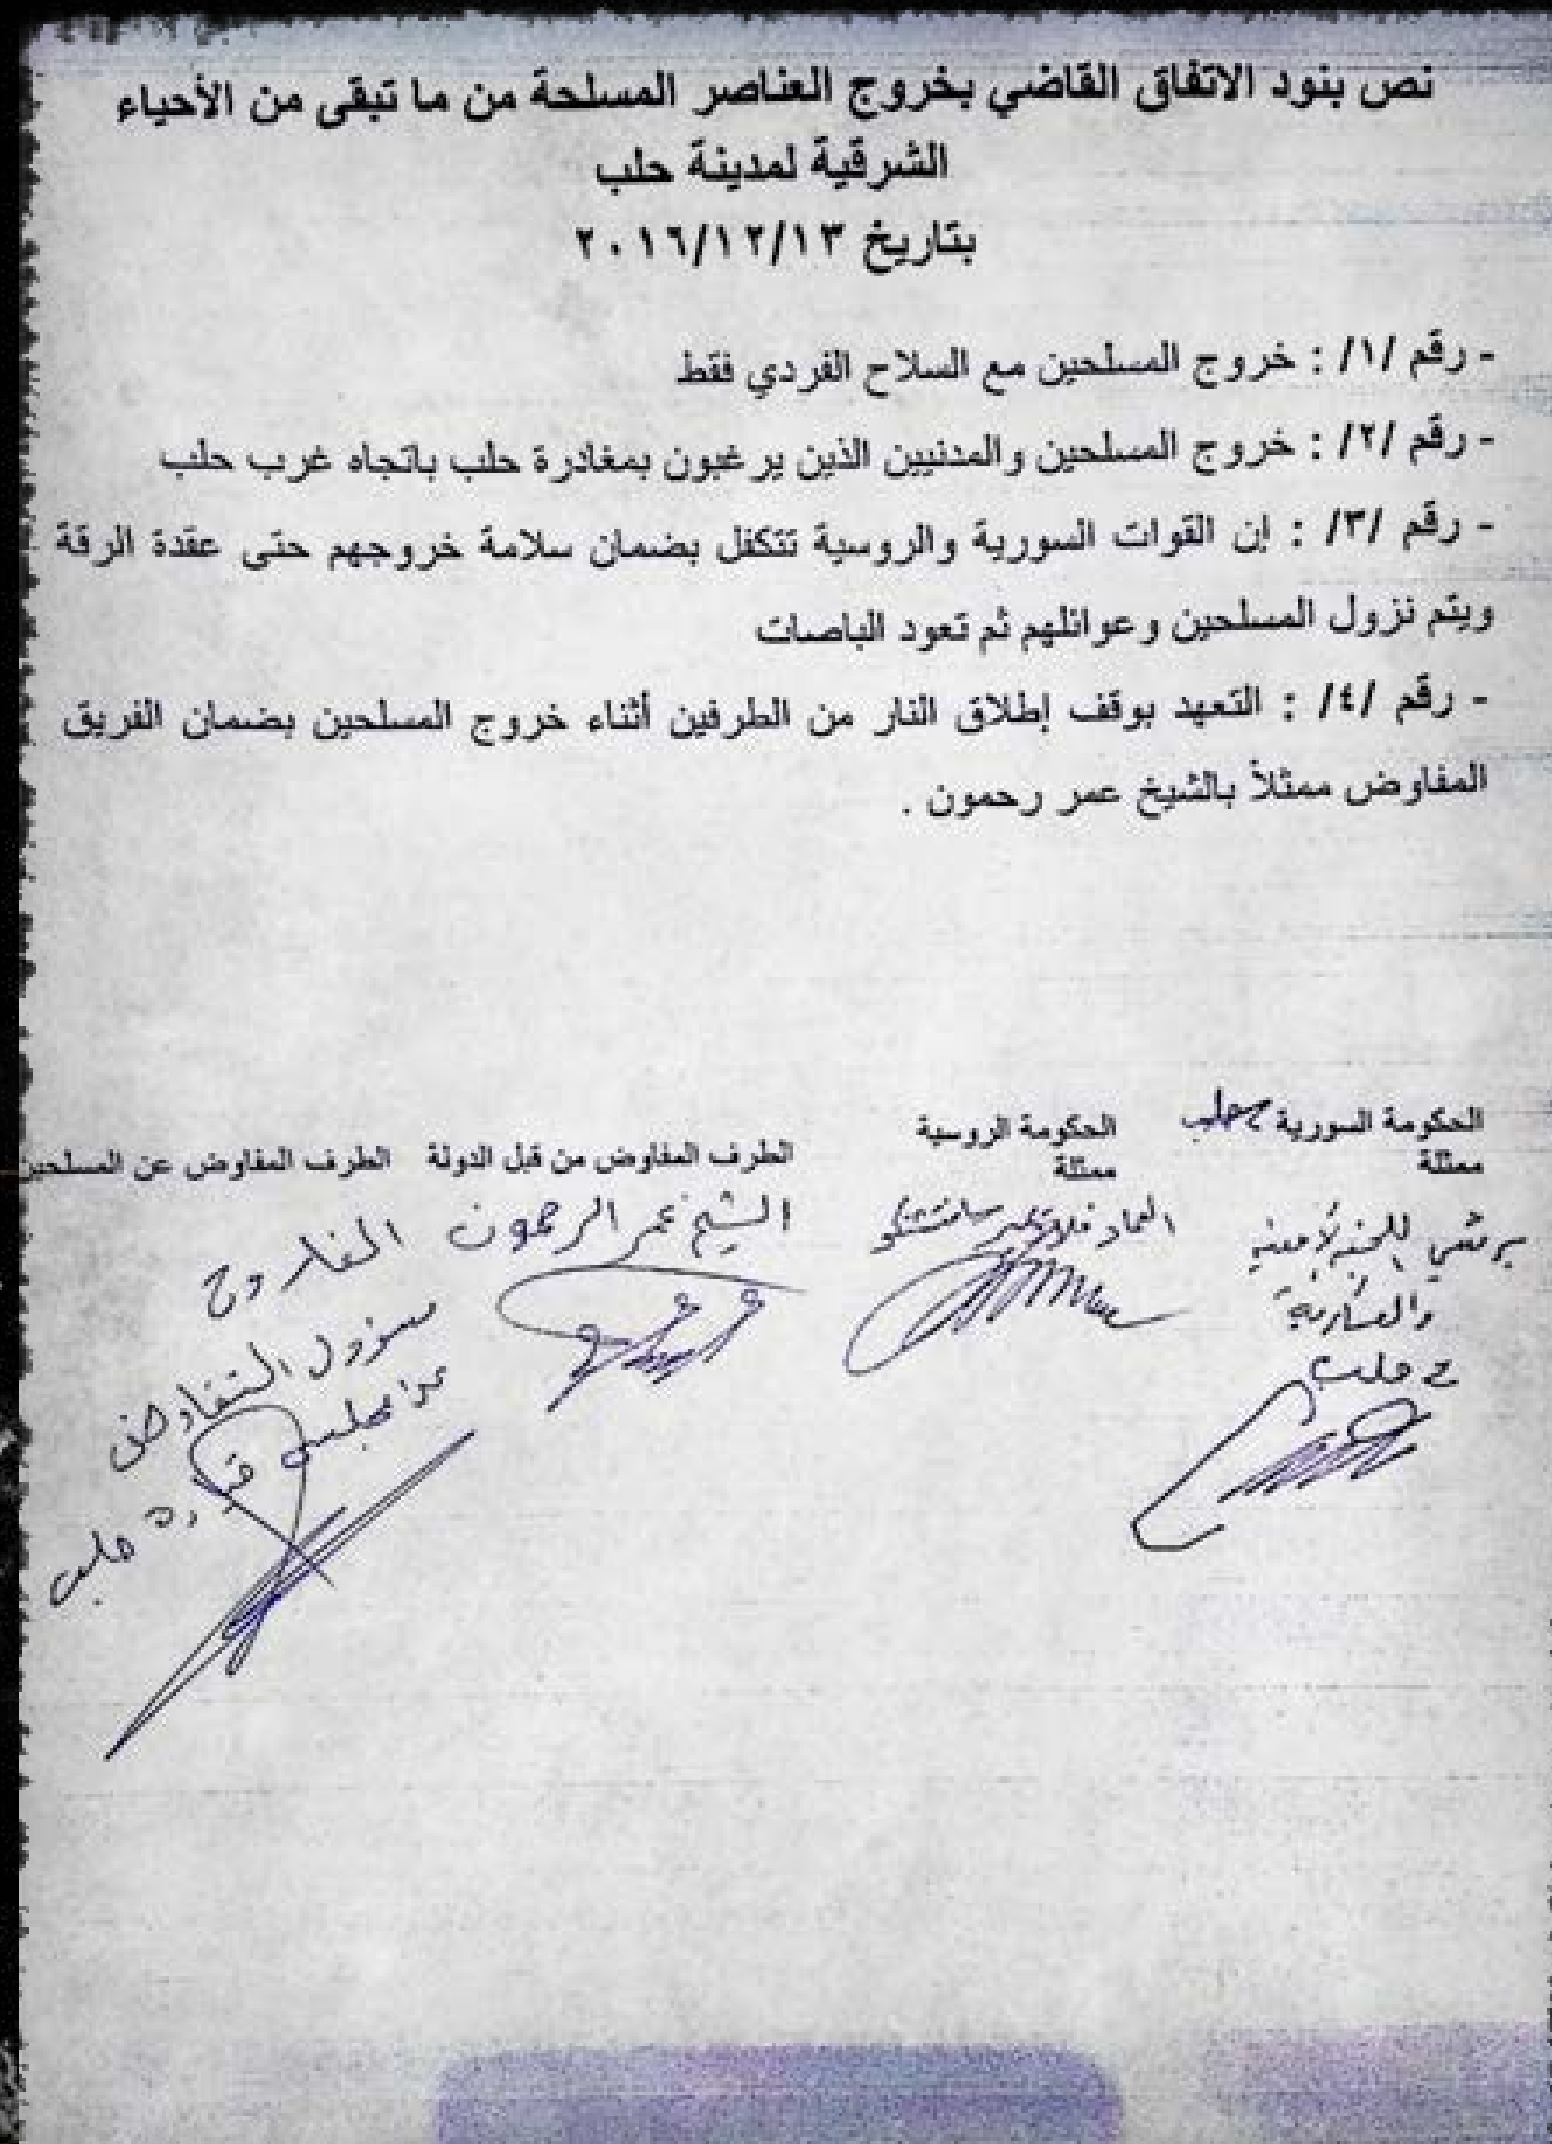 نص بنود الاتفاق القاضي بخروج العناصر المسلحة من ما تبقى من الأحياء
الشرقية لمدينة حلب
بتاريخ ٢٠١٦/١٢/١٣
- رقم /١/ : خروج المسلحين مع السلاح الفردي فقط
- رقم /٢/ : خروج المسلحين والمدنيين الذين يرغبون بمغادرة حلب باتجاه غرب حلب
- رقم /٣/ : إن القوات السورية والروسية تتكفل بضمان سلامة خروجهم حتى عقدة الرقة
ويتم نزول المسلحين وعوائلهم ثم تعود الباصات
- رقم /٤/ : التعهد بوقف إطلاق النار من الطرفين أثناء خروج المسلحين بضمان الفريق
المفاوض ممثلاً بالشيخ عمر رحمون .
الحكومة السورية بحلب
ممثلة
للجنة الأمنية
والعسكرية
حلب
الحكومة الروسية
ممثلة
العماد
الطرف المفاوض من قبل الدولة
الشيخ عمر الرحمون
الطرف المفاوض عن المسلحين
الفاروق
مسؤول التفاوض
عن مجلس قيادة حلب